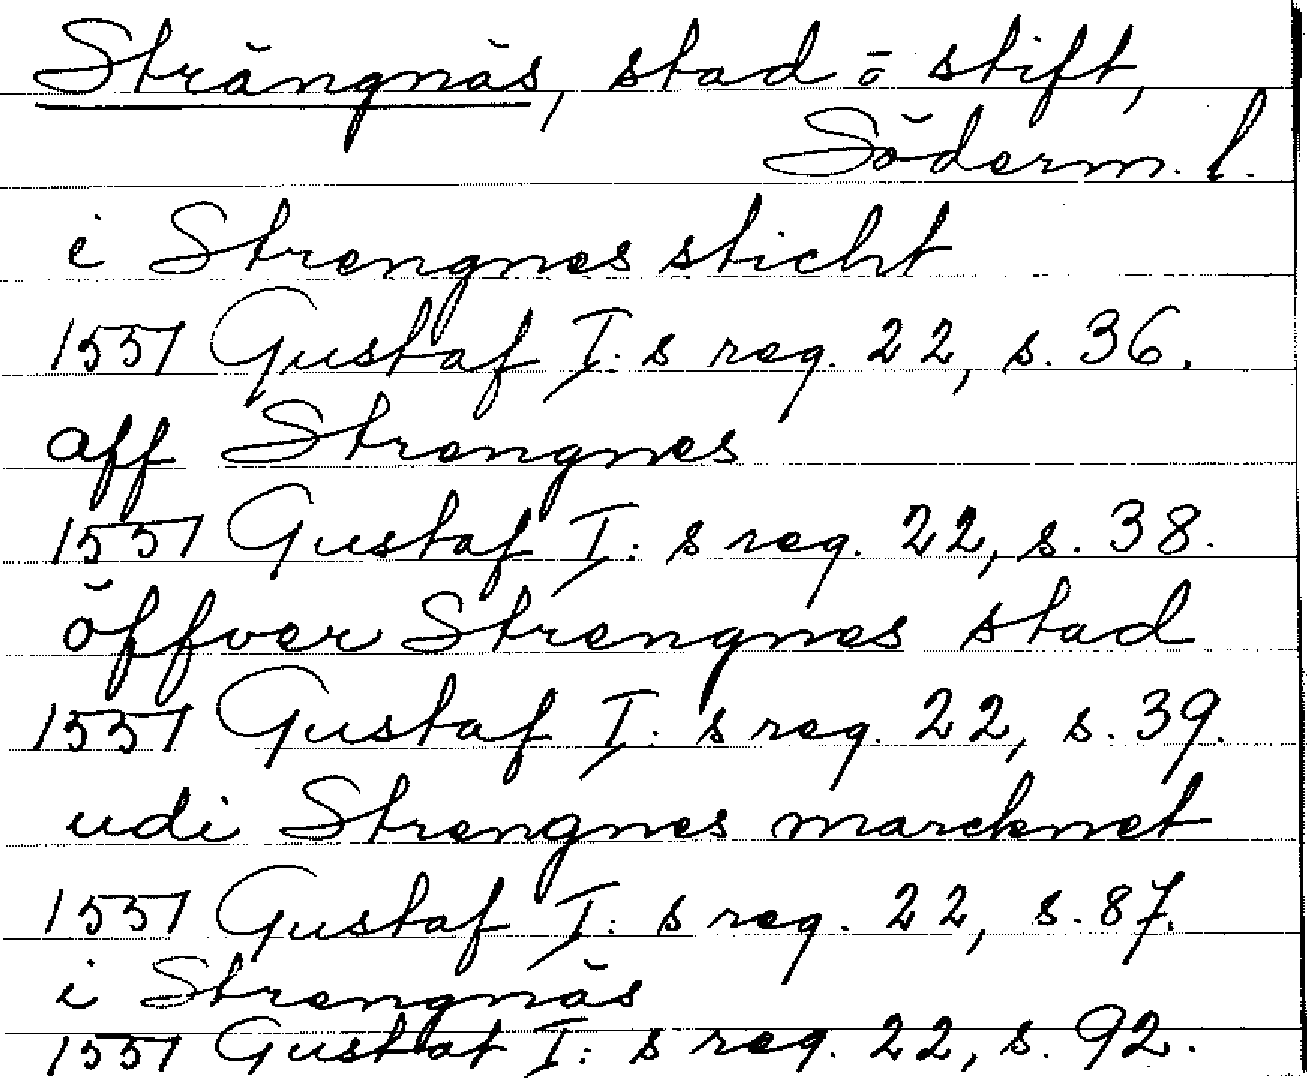 Strängnäs, stad o stift,
Söderm. l.
i Strengnes sticht
1551 Gustaf I:s reg. 22, s. 36.
aff Strengnes
1551 Gustaf I:s reg. 22, s. 38.
öffver Strengnes stad
1551 Gustaf I:s reg. 22, s. 39.
udi Strengnes marcknet
1551 Gustaf I:s reg. 22, s. 87.
i Strengnäs
1551 Gustaf I:s reg. 22, s. 92.